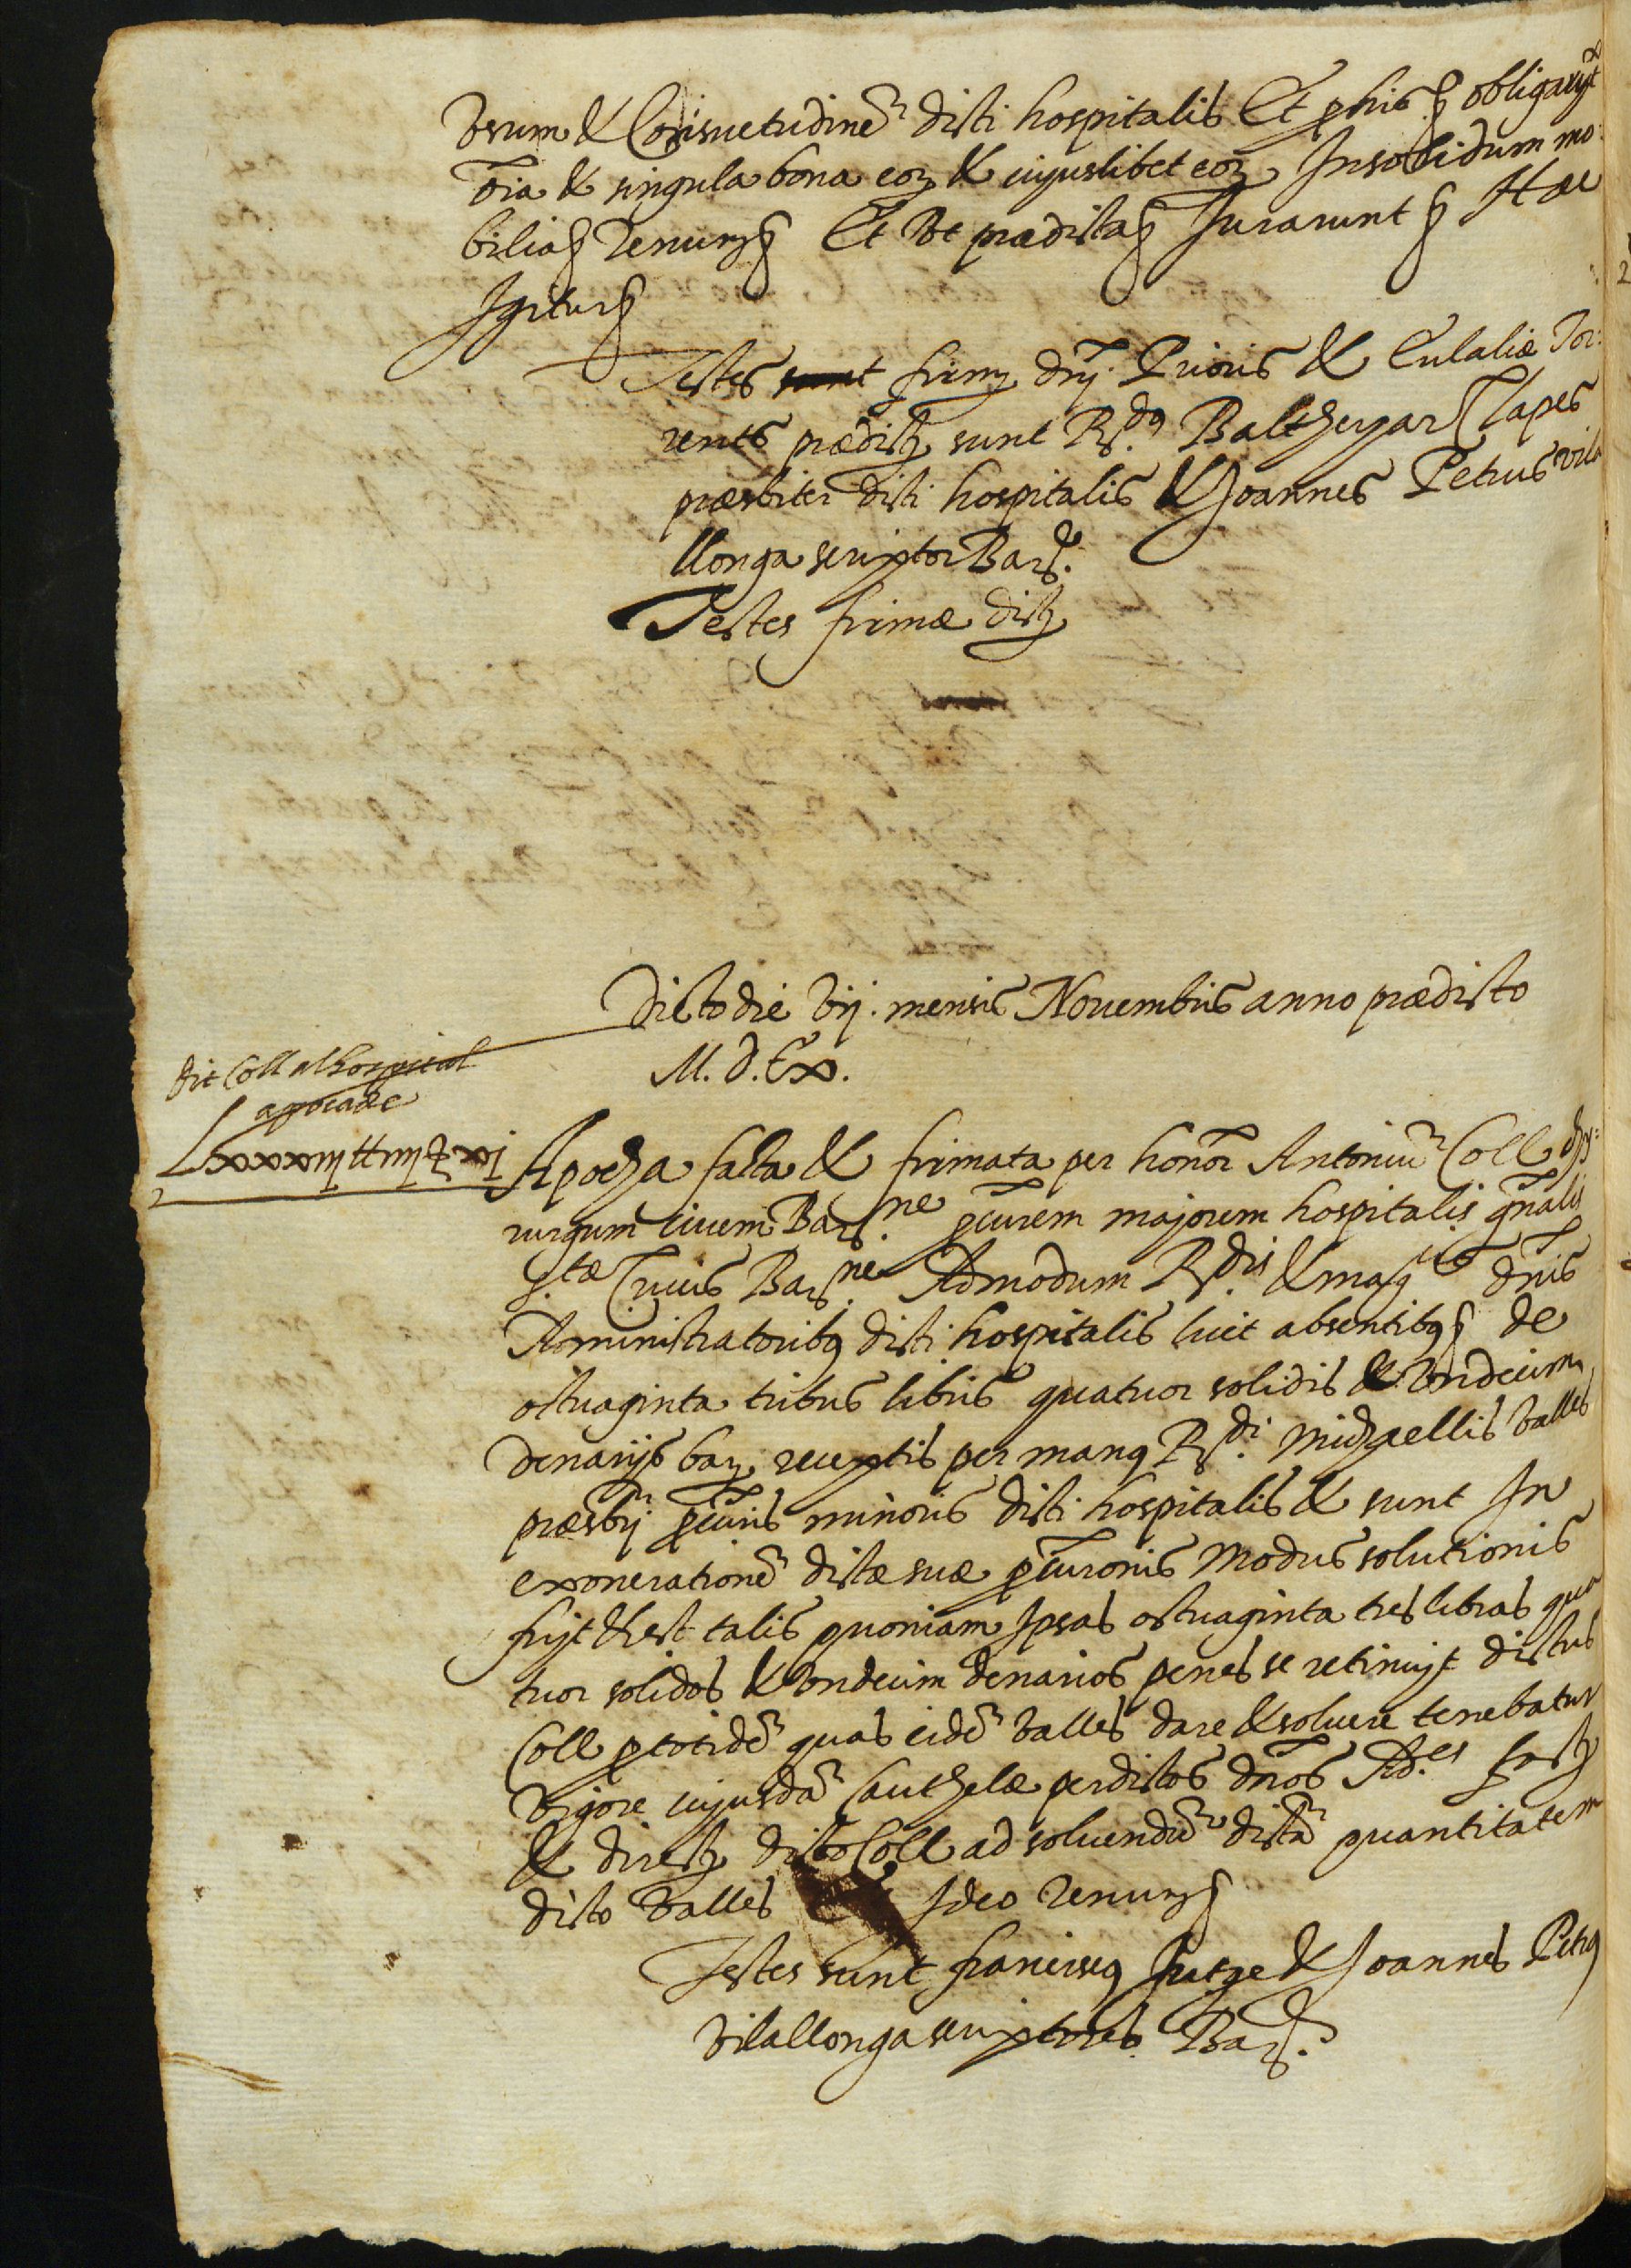 Vsum & Consuetudinē dicti hospitalis Et p his § obligarūt
oīa & singula bona eoꝝ & cujuslibet eoꝝ Insolidum mo:
bilia§ Renunꝫ§ Et Vt prædicta§ Jurarunt § Hæc
Igitur§
Testes sunt firmæ dnj. Prioris & Eulaliæ Tor:
rents prædictæ sunt Rdꝰ Balthezar Clapes
præsbiter dicti hospitalis & Joannes Petrus vila
llonga scriptor Barꝫ.
Testes firmæ dictæ
Dicto die Vij. mensis Nouembris anno prædicto
M. D. Lx.
dit Coll al hospital
apocade
Lxxxiij ll iiij ẞ xj
Apocha facta & firmata per honor Antoniū Coll chy:
rurgum ciuem Barꝫne ꝓcurem majorem hospitalis gnalis
Stæ Crucis Barꝫne Admodum Rdis & magcis dnis
Administratoribꝰ dicti hospitalis licet absentibꝰ§ de
octuaginta tribus libris quatuor solidis & Vndecim
denarijs barꝫ receptis per manꝰ Rdi Michaellis Valles
præsbrj ꝓcuris minoris dicti hospitalis & sunt In
exonerationē dictæ suæ ꝓcuronis Modus solutionis
fuyt & est talis quoniam Ipsas octuaginta tres libras qua
tuor solidos & Vndecim denarios penes se retinuyt dictus
Coll ꝓ totidē quas eidē Valles dare & soluere tenebatur
Vigore cujusdā Cauthelæ per dictos dnos Ad.es factæ
& directæ dicto Coll ad soluendū dictā quantitatem
dicto Valles Ideo Renunꝫ§
Testes sunt franciscꝰ Jutge & Joannes Petrꝰ
Vilallonga scriptores Barꝫ.